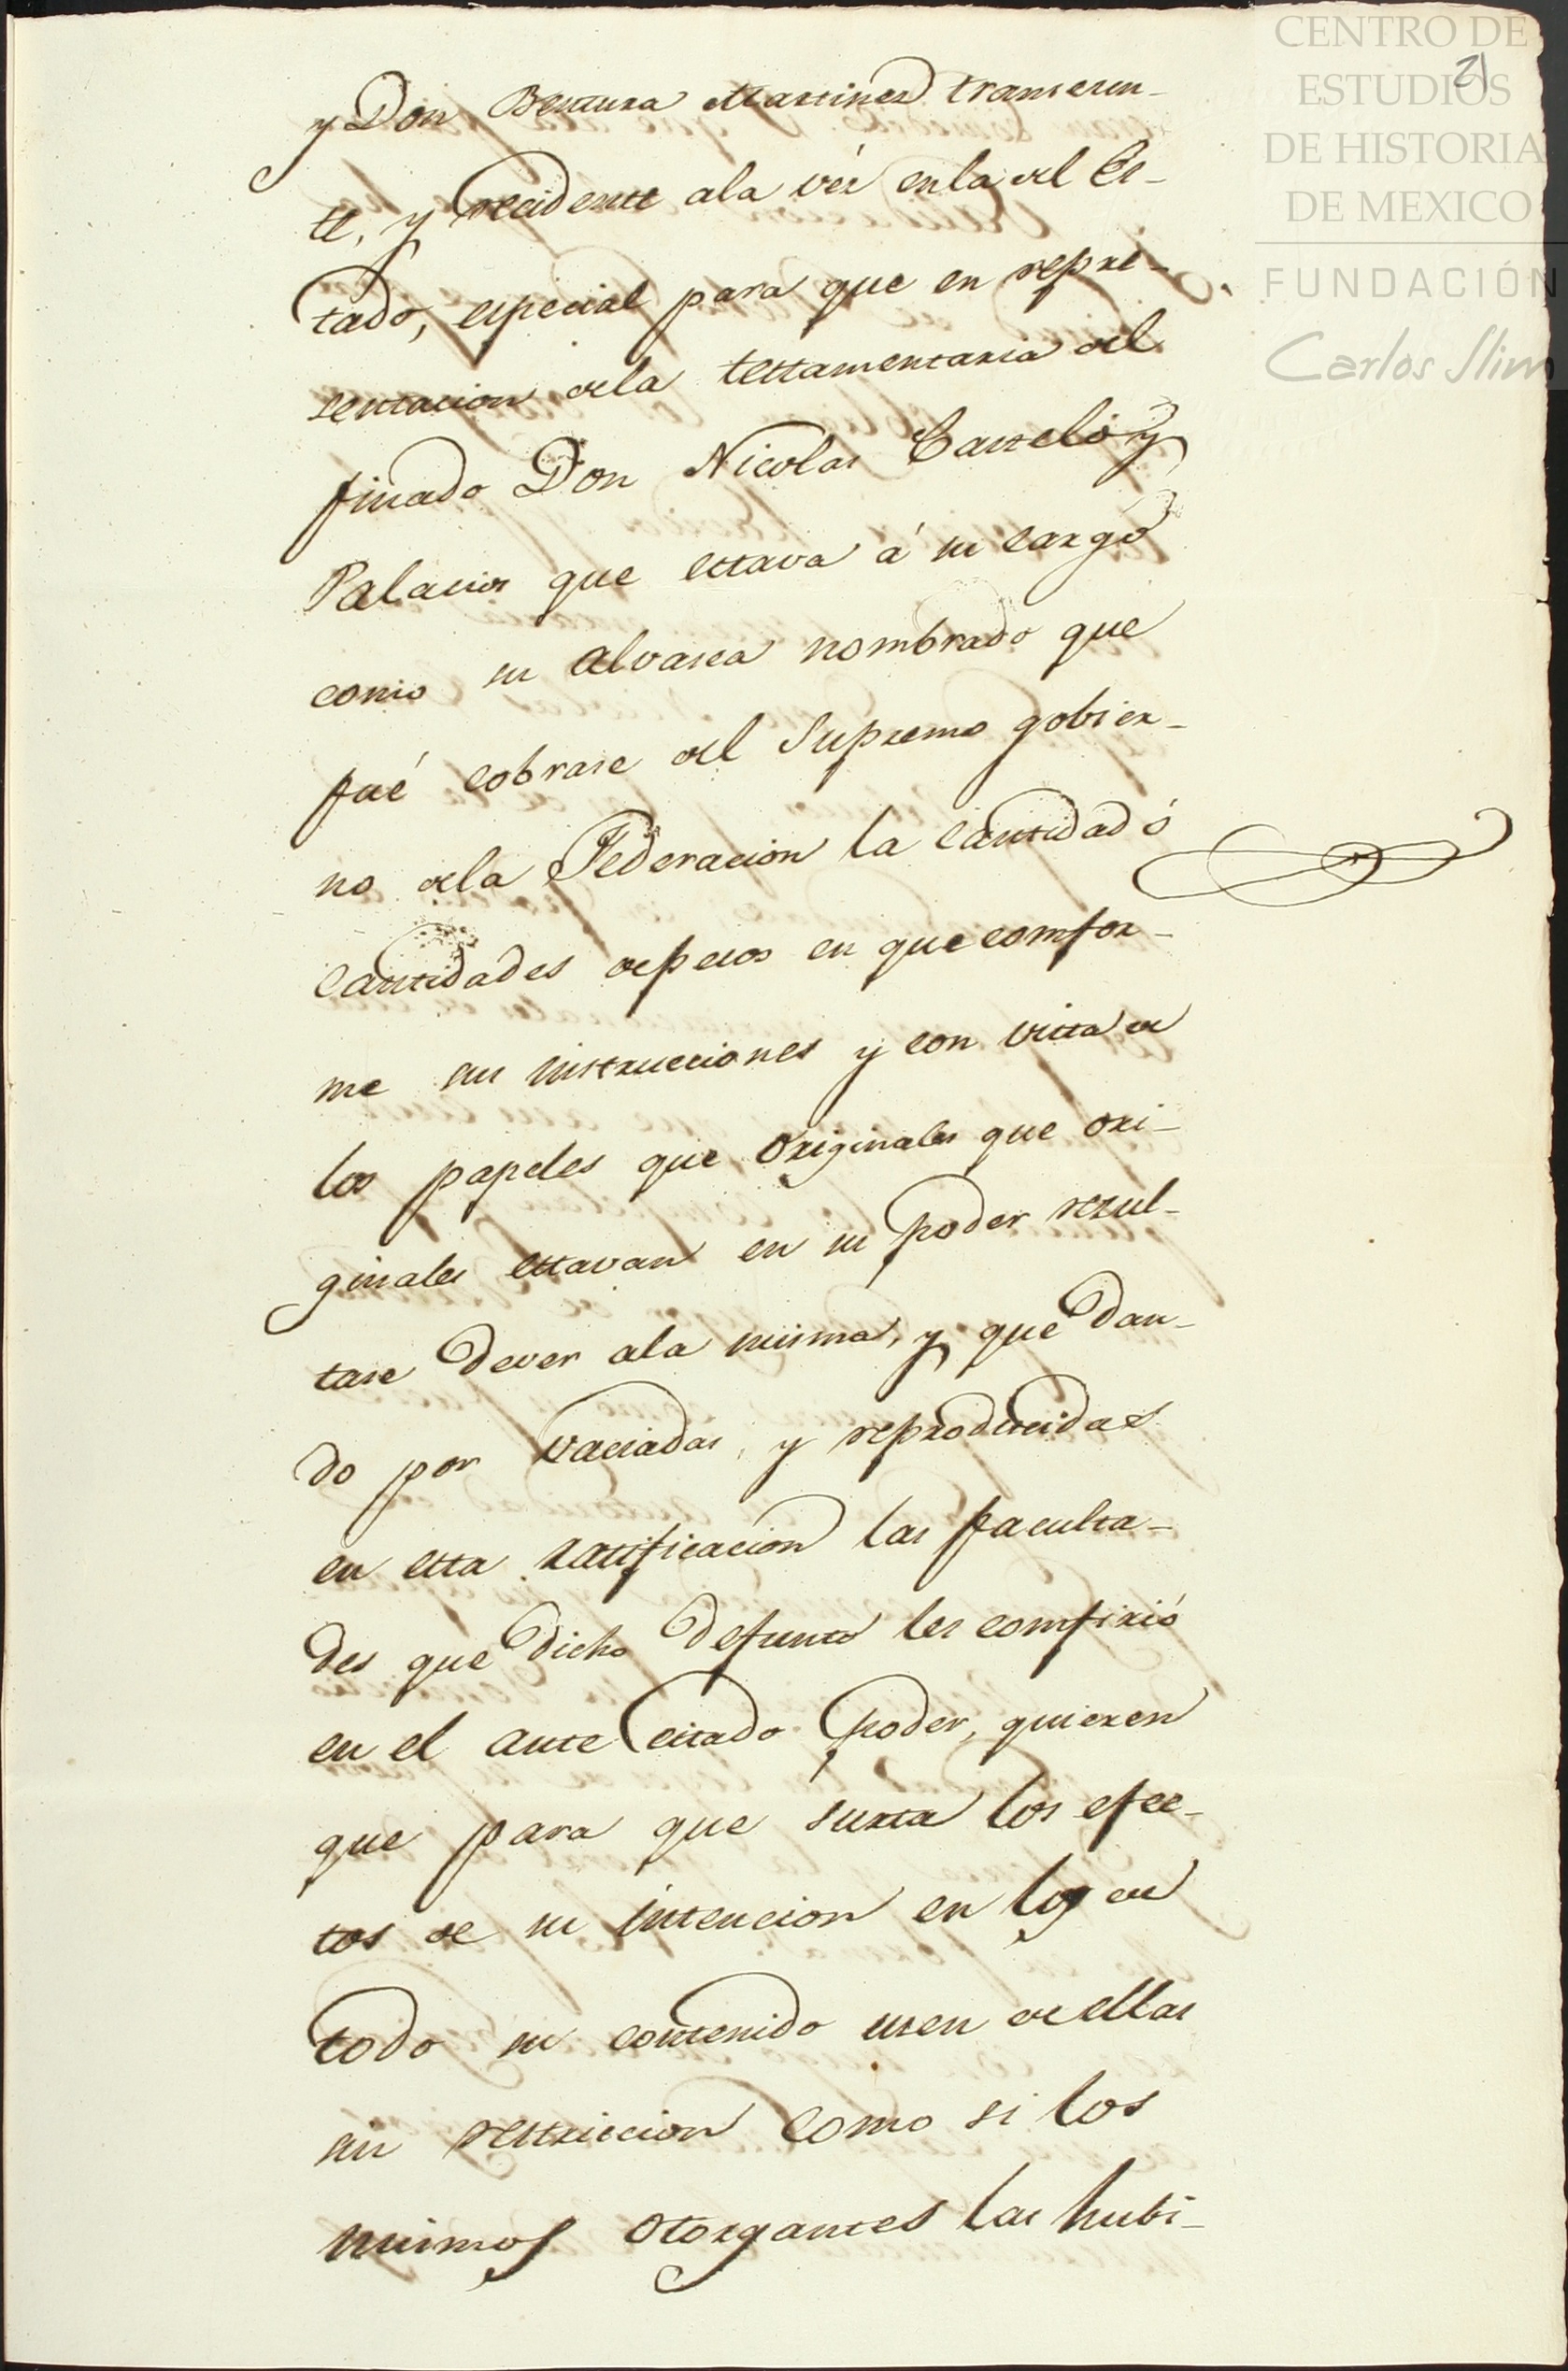 CENTRO DE
ESTUDIOS
DE HISTORIA
DE MEXICO
FUNDACIÓN
Carlos Slim
21
y Don Bentura Martinez transeun-
te, y recidente ala vés en la del Es-
tado, especial para que en repre-
sentacion dela testamentaria del
finado Don Nicolas Carceló y
Palacios que estava á su cargo
como su alvasea nombrado que
fué cobrase del Supremo gobier-
no dela Federacion la cantidad ó
cantidades de pesos en que comfor-
me sus instrucciones y con vista de
los papeles que originales que ori-
ginales estavan en su poder resul-
tase dever ala misma, y que dan-
do por vaciadas, y reproducidas
en esta ratificacion las faculta-
des que dicho defunto les comfirió
en el ante citado poder, quieren
que para que surta los efec-
tos de su intencion en los en
todo su contenido usen de ellas
sin restriccion como si los
mismos otorgantes las hubi-